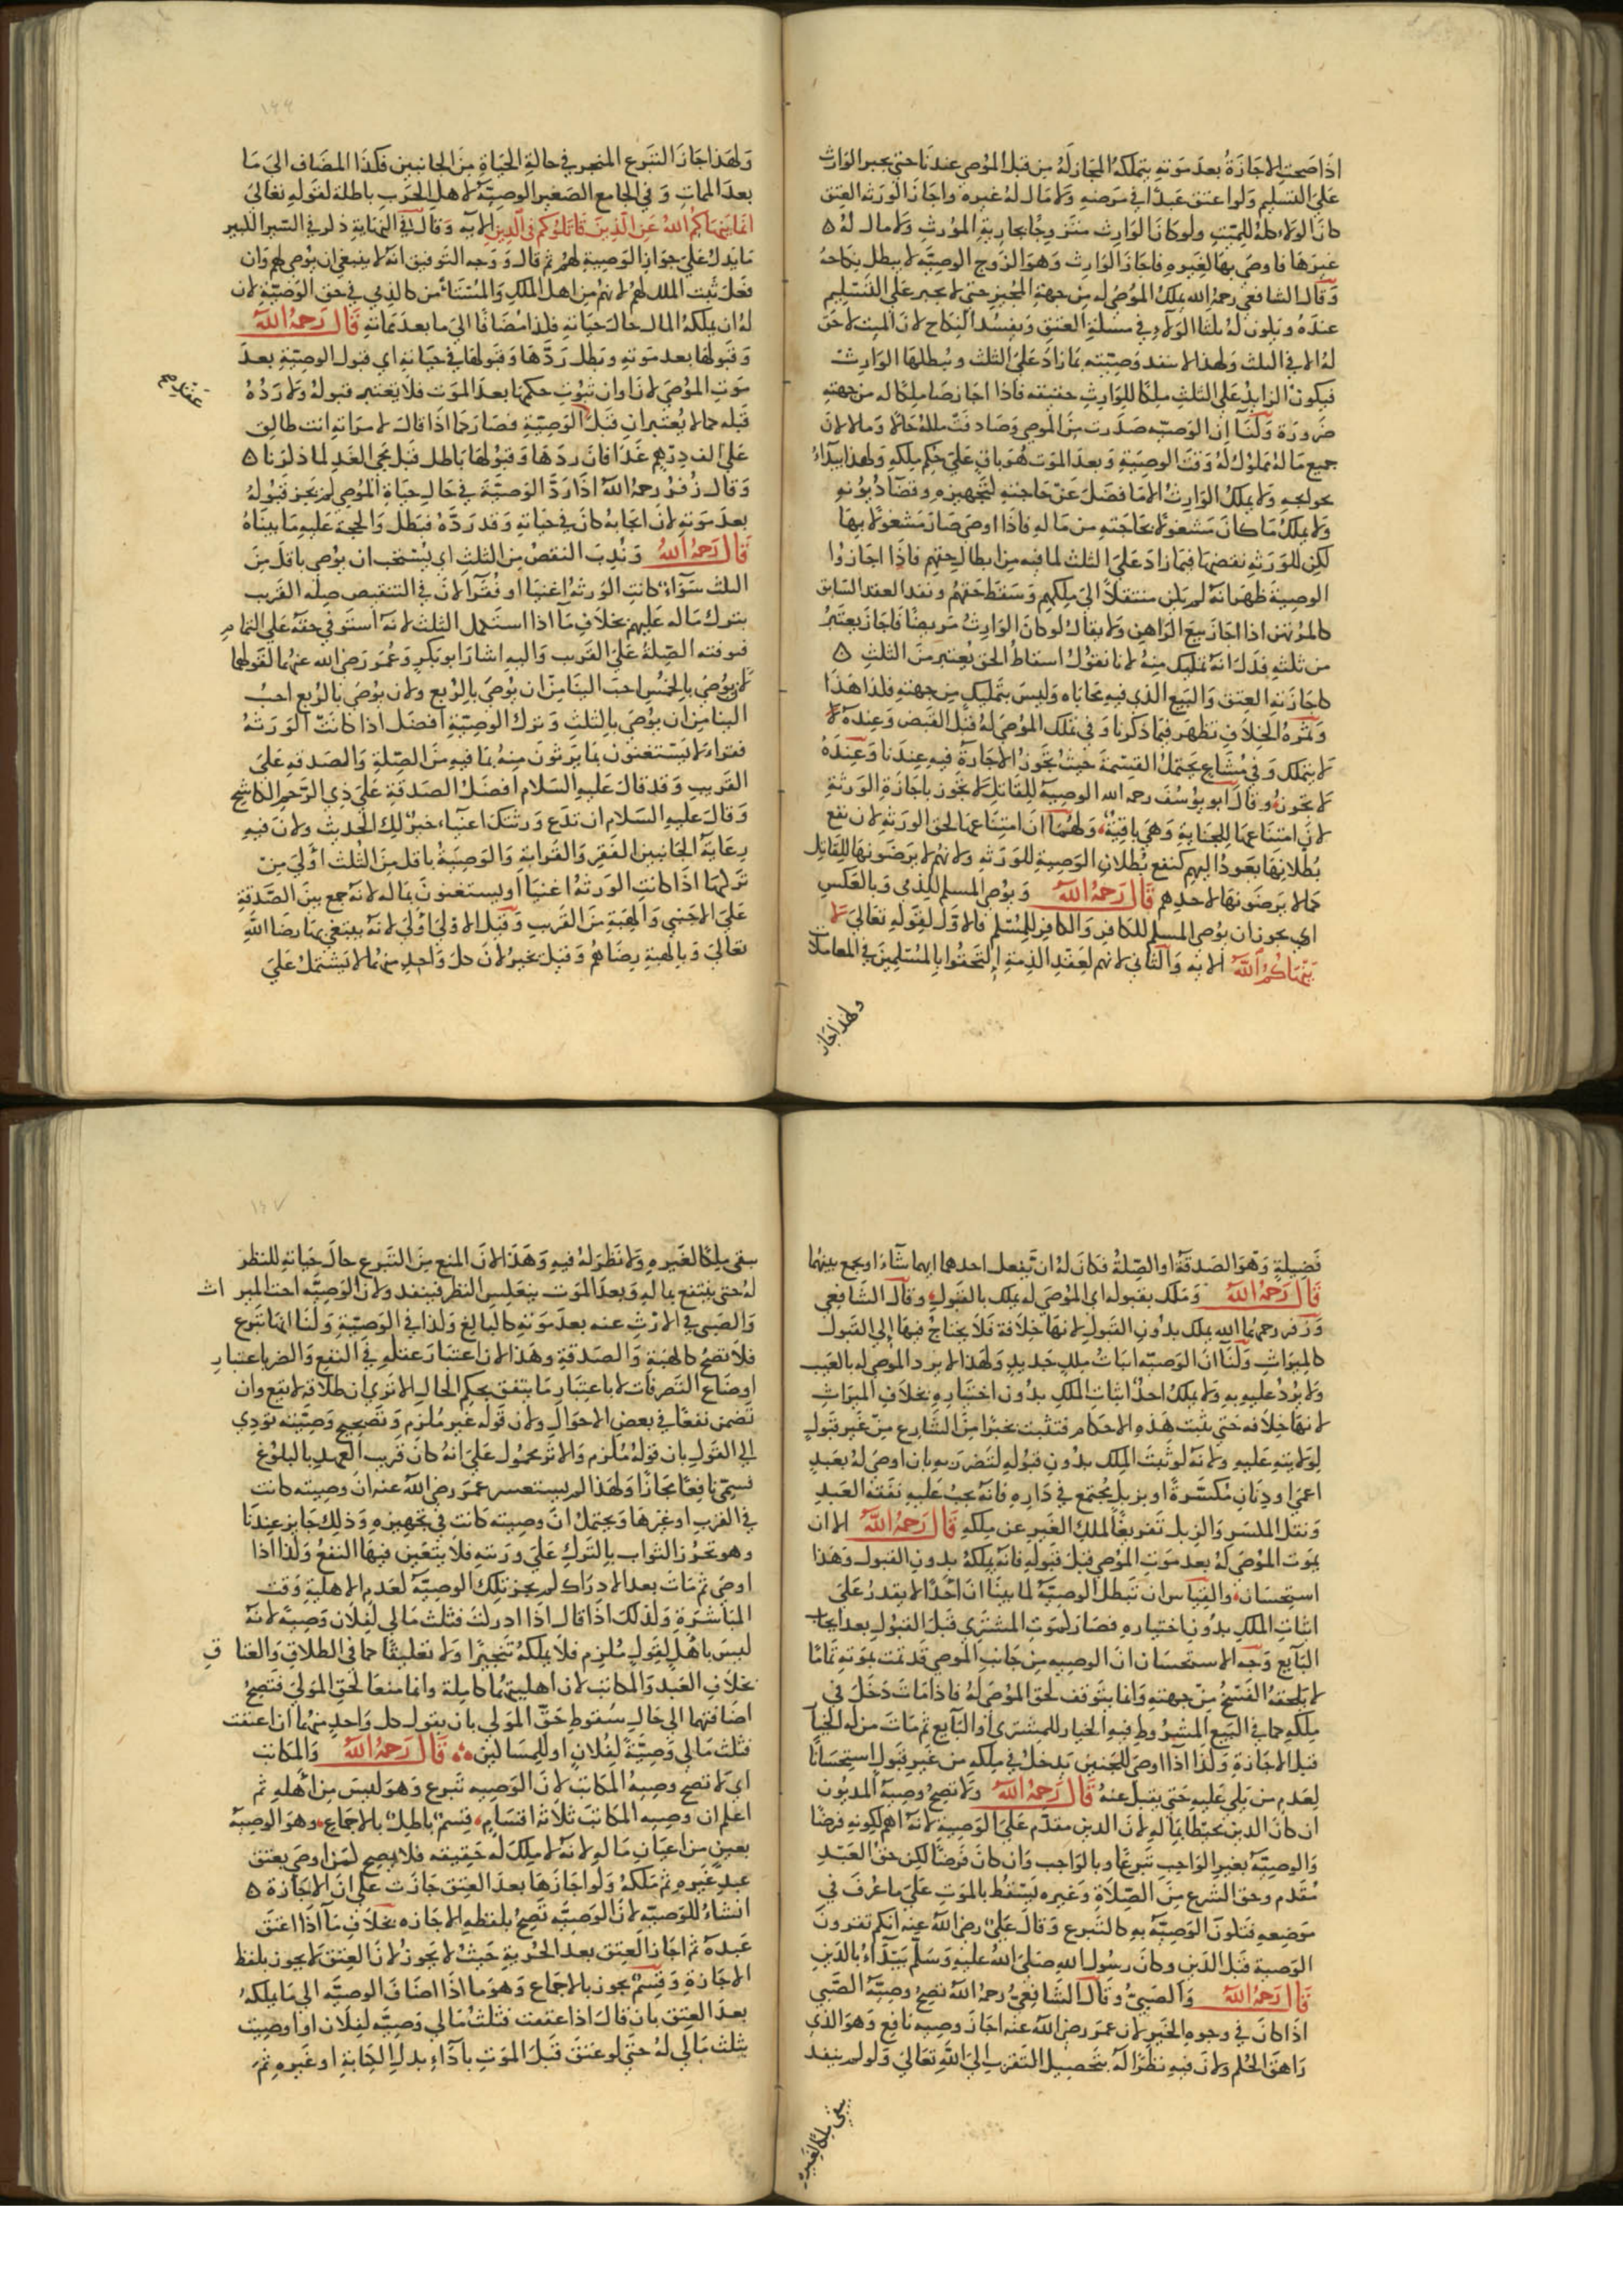 اذا صحت الاجازة بعد موته يتملكه المجاز له من قبل الموصى عندنا حتى يجبر الوارث
على التسليم ولو اعتق عبدا في مرضه ولا مال له غيره واجاز الورثة العتق
كان الولاء كله للميت ولو كان الوارث متزوجا بجارية المورث ولا مال له ه
غيرها فاوصى بها لغيره فاجاز الوارث وهو الزوج الوصية لا يبطل نكاحه
وقال الشافعي رحمه الله يملك الموصى له من جهة المجيز حتى لا يجبر على التسليم
عنده ويكون له ثلثا الولاء في مسئلة العتق ويفسد النكاح لان الميت لا حق
له الا في الثلث ولهذا لا تنفذ وصيته بما زاد على الثلث ويبطلها الوارث
فيكون الزايد على الثلث ملكا للوارث حقيقة فاذا اجاز صار ملكا له من جهته
ضرورة ولنا ان الوصية صدرت من الموصى وصادفت ملكه حالا ومآلا لان
جميع ماله مملوك له وقت الوصية وبعد الموت هو باق على حكم ملكه ولهذا يبداء
بحوايجه ولا يملك الوارث الا ما فضل عن حاجته لتجهيزه وقضاء ديونه
ولا يملك ما كان مشغولا بحاجته من ماله فاذا اوصى صار مشغولا بها
لكن للورثة نقضها فيما زاد على الثلث لما فيه من ابطال حقهم فاذا اجازوا
الوصية ظهر انه لم يكن منتقلا الى ملكهم وسقط حقهم ونفذ العقد السابق
كالمرتهن اذا اجاز بيع الراهن ولا يقال لو كان الوارث مريضا فاجاز يعتبر
من ثلثه فدل انه تمليك منه لانا نقول اسقاط الحق يعتبر من الثلث ه
كاجازته العتق والبيع الذي فيه محاباه وليس بتمليك من جهته فكذا هذا
وثمرة الخلاف تظهر فيما ذكرنا وفي تملك الموصى له قبل القبض وعنده لا
لا يتملك وفي مشاع يحتمل القسمة حيث تجوز الاجازة فيه عندنا وعنده
لا تجوز وقال ابو يوسف رحمه الله الوصية للقاتل لا تجوز باجازة الورثة
لان امتناعها للجناية وهي باقية ولهما ان امتناعها لحق الورثة لان نفع
بطلانها يعود اليهم كنفع بطلان الوصية للورثة ولانهم لا يرضونها للقاتل
كما لا يرضونها لاحدهم قال رحمه الله ويوصى المسلم للذمى وبالعكس
اي يجوز ان يوصى المسلم للكافر والكافر للمسلم فالاول لقوله تعالى لا
ينهاكم الله الاية والثاني لانهم لعقد الذمة التحقوا بالمسلمين في المعاملات
ولهذا جاز
ولهذا جاز التبرع المنجز في حالة الحياة من الجانبين فكذا المضاف الى ما
بعد الممات وفي الجامع الصغير الوصية لاهل الحرب باطلة لقوله تعالى
انما ينهاكم الله عن الذين قاتلوكم في الدين الاية وقال في النهاية ذكر في السير الكبير
ما يدل على جواز الوصية لهم ثم قال ووجه التوفيق انه لا ينبغي ان يوصى لهم وان
فعل ثبت الملك لهم لانهم من اهل الملك والمستأمن كالذمي في حق الوصية لان
له ان يملكه المال حال حياته فكذا مضافا الى ما بعد مماته قال رحمه الله
وقبولها بعد موته وبطل ردها وقبولها في حياته اي قبول الوصية بعد
موت الموصى لان اوان ثبوت حكمها بعد الموت فلا يعتبر قبوله ولا رده
قبله كما لا يعتبران قبل الوصية فصار كما اذا قال لامراته انت طالق
على الف درهم غدا فان ردها وقبولها باطل قبل مجى الغد لما ذكرنا ه
وقال زفر رحمه الله اذا رد الوصية في حال حياة الموصى لم يجز قبوله
بعد موته لان ايجابه كان في حياته وقد رده فبطل والحجة عليه ما بيناه
قال رحمه الله وندب النقص من الثلث اي يستحب ان يوصى باقل من
الثلث سواء كانت الورثة اغنيا او فقرا لان في التنقيص صلة القريب
بترك ماله عليهم بخلاف ما اذا استكمل الثلث لانه استوفى حقه على التمام
فتوفته الصلة على القريب واليه اشار ابو بكر وعمر رضى الله عنهما لقولهما
لان يوصى بالخمس احب الينا من ان يوصى بالربع ولان يوصى بالربع احب
الينا من ان يوصى بالثلث وترك الوصية افضل اذا كانت الورثة
فقراء لا يستغنون بما يرثون منه بما فيه من الصلة والصدقة على
القريب وقد قال عليه السلام افضل الصدقة على ذي الرحم الكاشح
وقال عليه السلام ان تدع ورثتك اغنياء خير لك الحديث ولان فيه
رعاية الجانبين الفقر والقرابة والوصية باقل من الثلث اولى من
تركها اذا كانت الورثة اغنيا او يستغنون بماله لانه جمع بين الصدقة
على الاجنبى والهبة من القريب وقيل الاولى اولى لانه يبتغي بها رضا الله
تعالى وبالهبة رضاهم وقيل يخير لان كل واحد منهما لا يشتمل على
فضيلة وهو الصدقة او الصلة فكان له ان يفعل احدهما ايهما شاء او يجمع بينهما
قال رحمه الله وملك بقبوله اي الموصى له يملك بالقبول وقال الشافعي
وزفر رحمهما الله يملك بدون القبول لانها خلافة فلا يحتاج فيها الى القبول
كالميراث ولنا ان الوصية اثبات ملك جديد ولهذا لا يرد الموصى له بالعيب
ولا يرد عليه به ولا يملك احد اثبات الملك بدون اختياره بخلاف الميراث
لانها خلافه حتى يثبت هذه الاحكام فتثبت بخبرا من الشارع من غير قبول
لولايته عليه ولانه لو ثبت الملك بدون قبوله لتضرر به بان اوصى له بعبد
اعمى او دنان مكسرة او بزبل يجتمع في داره فانه يجب عليه نفقة العبد
ونقل المكسر والزبل تفريغا لملك الغير عن ملكه قال رحمه الله الا ان
يموت الموصى له بعد موت الموصى قبل قبوله فانه يملكه بدون القبول وهذا
استحسان والقياس ان تبطل الوصية لما بينا ان احدا لا يقدر على
اثبات الملك بدون اختياره فصار كموت المشتري قبل القبول بعد ايجاب
البايع وجه الاستحسان ان الوصيه من جانب الموصى قد تمت بموته تماما
لا يلحقه الفسخ من جهته وانما يتوقف لحق الموصى له فاذا مات دخل في
ملكه كما في البيع المشروط فيه الخيار للمشترى او البايع ثم مات من له الخيا
قبل الاجازة وكذا اذا اوصى للجنين يدخل في ملكه من غير قبول استحسانا
لعدم من يلى عليه حتى يقبل عنه قال رحمه الله ولا تصح وصية المديون
ان كان الدين محيطا بماله لان الدين مقدم على الوصية لانه اهم لكونه فرضا
والوصية بغير الواجب تبرعا وبالواجب وان كان فرضا لكن حق العبد
مقدم وحق الشرع من الصلاة وغيره يسقط بالموت على ما عرف في
موضعه فتكون الوصية به كالتبرع وقال على رضى الله عنه انكم تقرون
الوصية قبل الدين وكان رسول الله صلى الله عليه وسلم يبداء بالدين
قال رحمه الله والصبى وقال الشافعي رحمه الله تصح وصية الصبي
اذا كان في وجوه الخير لان عمر رضى الله عنه اجاز وصيه يافع وهو الذي
راهق الحلم ولان فيه نظرا له بتحصيل التقرب الى الله تعالى ولو لم ينفذ
يبقى ملكا لغيره
يبقى ملكا لغيره ولا نظر له فيه وهذا لان المنع من التبرع حال حياته للنظر
له حتى ينتفع بماله وبعد الموت ينعكس النظر فينفذ ولان الوصية اخت الميراث
والصبى في الارث عنه بعد موته كالبالغ وكذا في الوصية ولنا انها تبرع
فلا تصح كالهبة والصدقة وهذا لان اعتبار عقله في النفع والضر باعتبار
اوضاع التصرفات لا باعتبار ما يتفق بحكم الحال الا ترى ان طلاقه لا يقع وان
تضمن نفعا في بعض الاحوال ولان قوله غير ملزم وتصحيح وصيته تؤدي
الى القول بان قوله ملزم والاثر محمول على انه كان قريب العهد بالبلوغ
فسمى يافعا مجازا ولهذا لم يستفسر عمر رضى الله عنه ان وصيته كانت
في القرب او غيرها ويحتمل ان وصيته كانت في تجهيزه وذلك جايز عندنا
وهو تحرز الثواب بالترك على ورثته فلا يتعين فيها النفع وكذا اذا
اوصى ثم مات بعد الادراك لم يجز تلك الوصية لعدم الاهلية وقت
المباشرة وكذلك اذا قال اذا ادركت فثلث مالى لفلان وصية لانه
ليس باهل لقول ملزم فلا يملكه تنجيزا ولا تعليقا كما في الطلاق والعتاق
بخلاف العبد والمكاتب لان اهليتهما كاملة وانما منعا لحق المولى فتصح
اضافتهما الى حال سقوط حق المولى بان يقول كل واحد منهما ان اعتقت
فثلث مالى وصية لفلان او للمساكين قال رحمه الله والمكاتب
اي لا تصح وصية المكاتب لان الوصيه تبرع وهو ليس من اهله ثم
اعلم ان وصيه المكاتب ثلاثة اقسام قسم باطل بالاجماع وهو الوصية
بعين من اعيان ماله لانه لا ملك له حقيقه فلا يصح كمن اوصى بعتق
عبد غيره ثم ملكه ولو اجازها بعد العتق جازت على ان الاجازة ه
انشاء للوصية لان الوصية تصح بلفظه الاجازه بخلاف ما اذا اعتق
عبده ثم اجاز العتق بعد الحرية حيث لا يجوز لان العتق لا يجوز بلفظ
الاجازة وقسم يجوز بالاجماع وهو ما اذا اضاف الوصية الى ما يملكه
بعد العتق بان قال اذا عتقت فثلث مالى وصية لفلان او اوصيت
بثلث مالى له حتى لو عتق قبل الموت باداء بدل الكتابة او غيره ثم